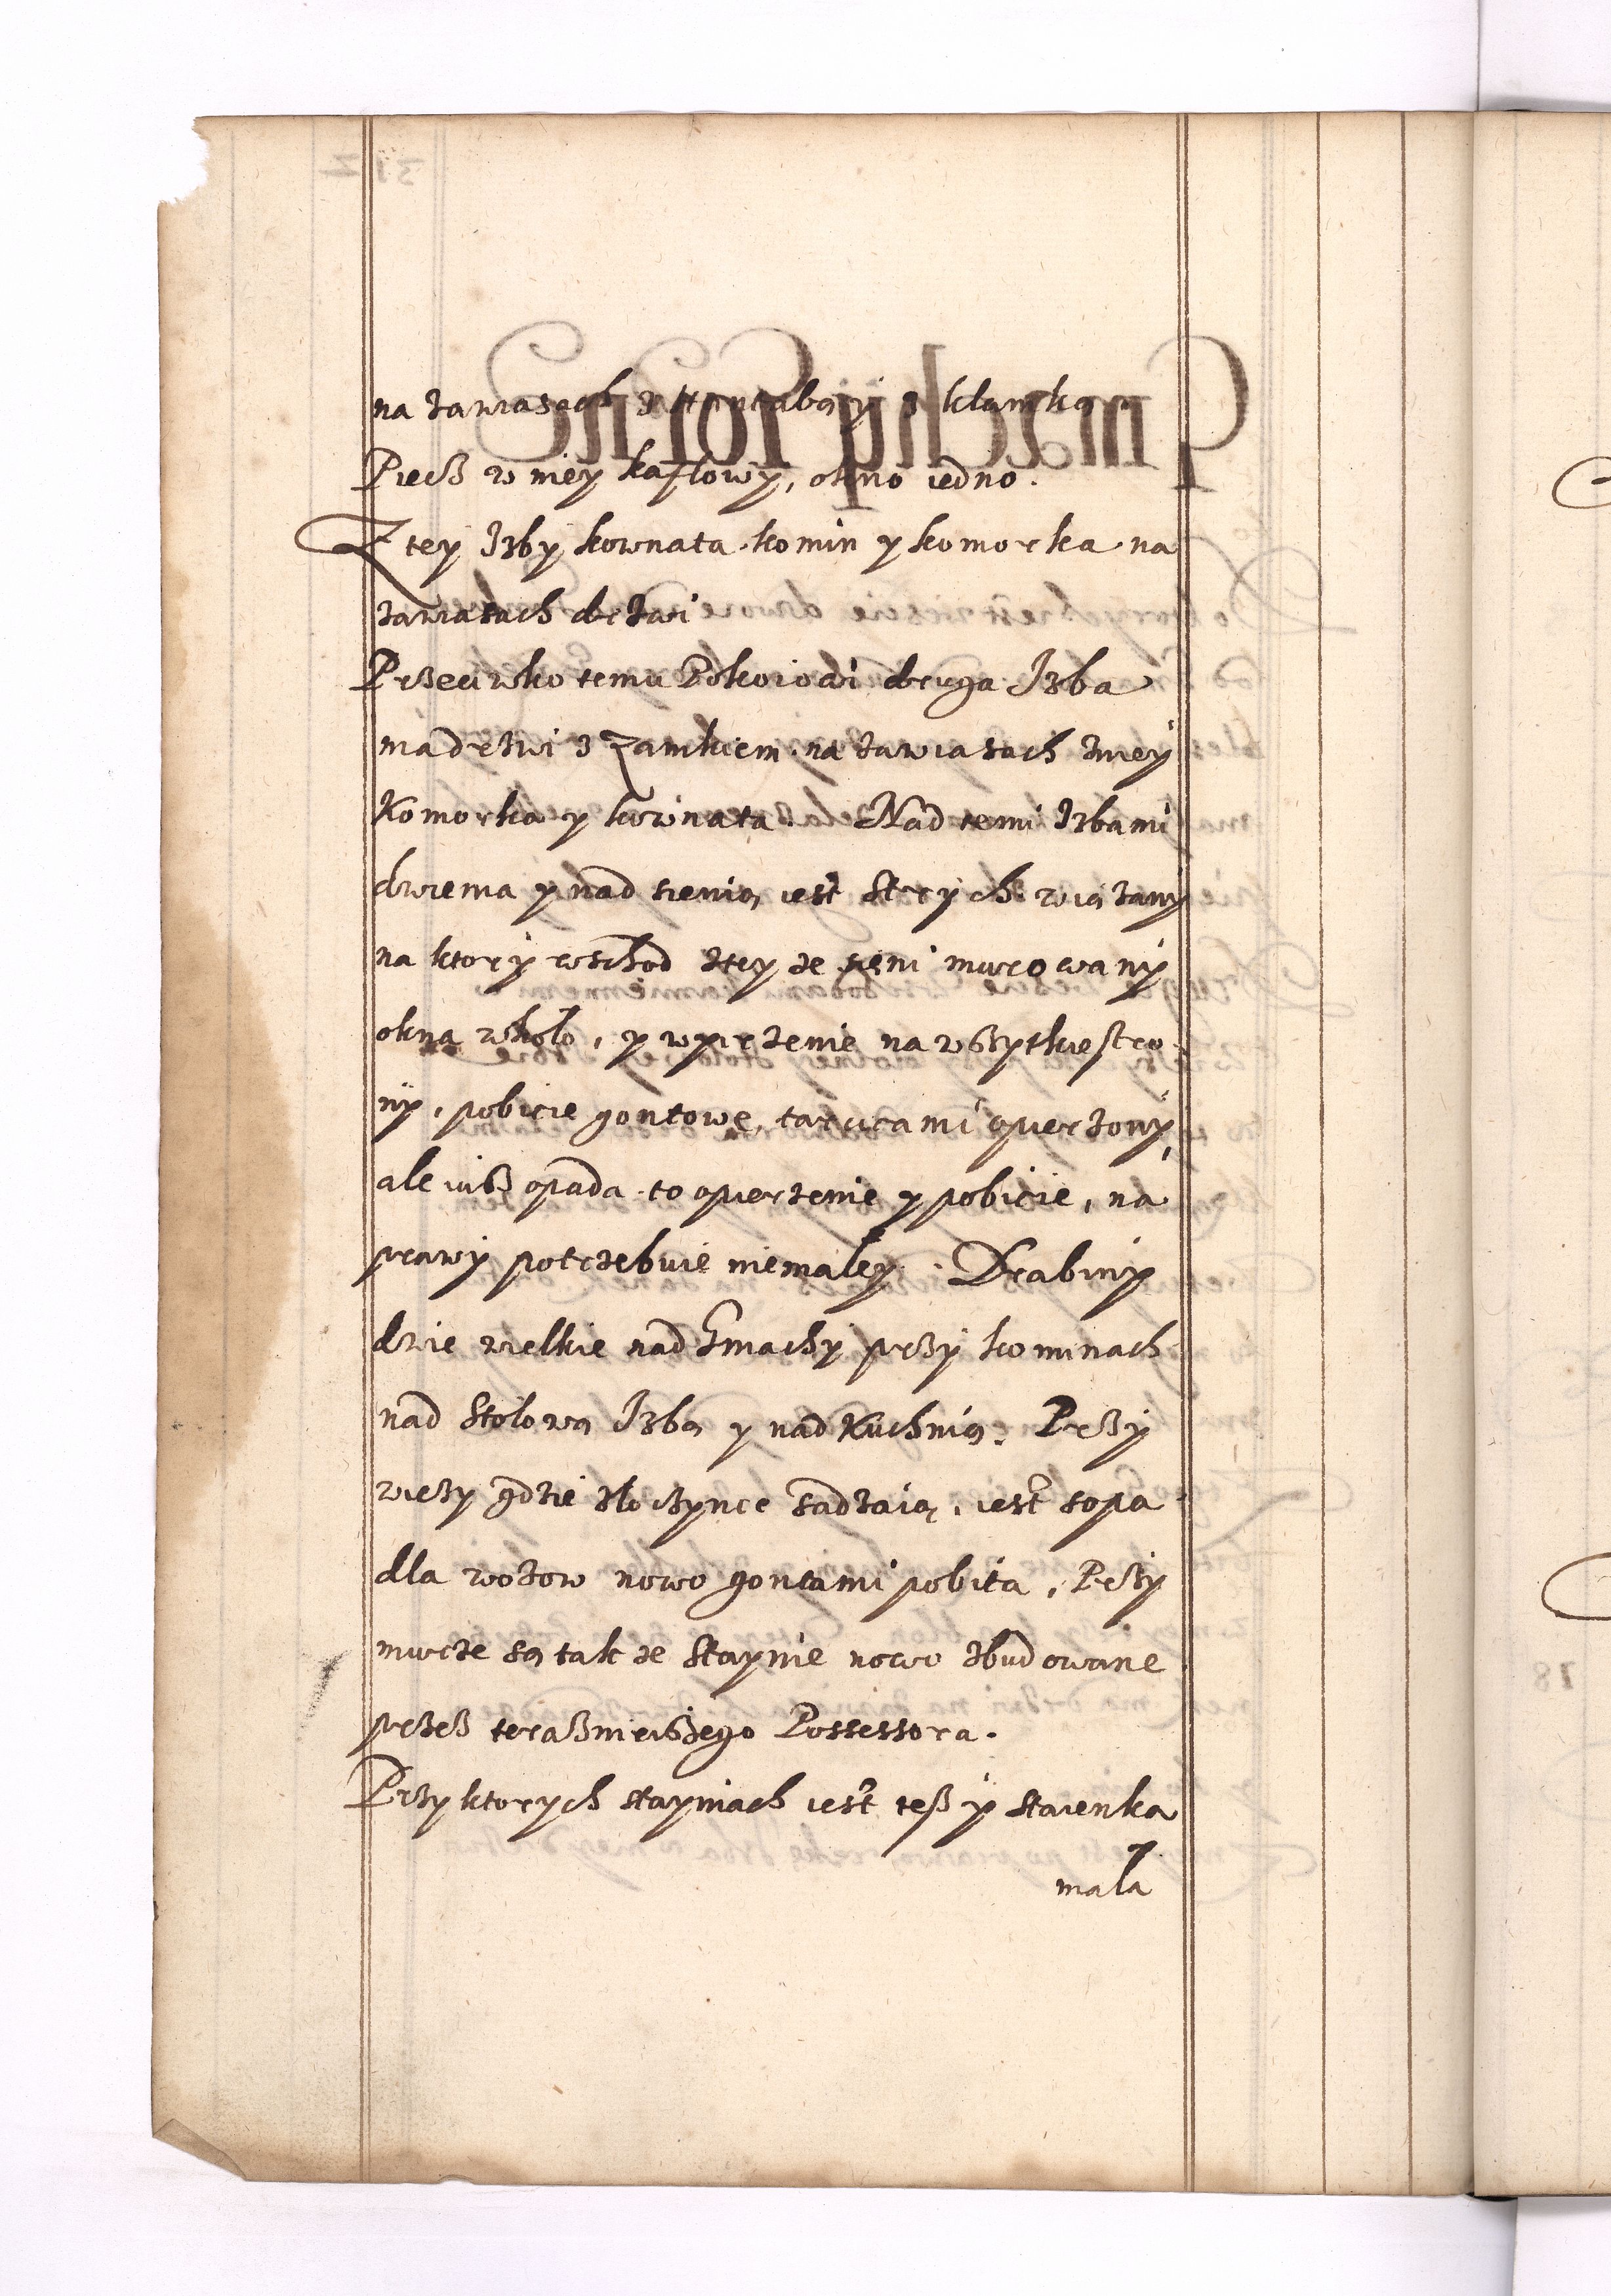 na zawiasach z Hantabą y z klamką
Piecß w niey kaflowy, okno iedno.
Z tey Izby kownata komin y komorka na
zawiasach drzwi
Przeciwko temu Pokoiowi druga Izba
ma drzwi z Zamkiem na zawiasach w niey
Komorka y kownata. Nad temi Izbami
dwiema y nad sienią iest Strych wiązany
na ktory wschod z tey ze sieni murowany
okna wkoło, y wpierzenie na wßytkie stro
ny, pobicie gontowe, tarcicami opierzony,
ale iuß opada to opierzenie y pobicie, na
prawy potrzebuie niemałey. Drabiny
dwie wielkie nad Gmachy przy kominach
nad Stołową Izbą y nad Kuchnią. Przy
wieży gdzie złoczynce sadzaią, iest sopa
dla wozow nowo gontami pobita, Przy
murze są tak ze Staynie nowo zbudowane
przeß teraßnieißego Possessora.
Przy ktorych stayniach iest teß y staienka
mała